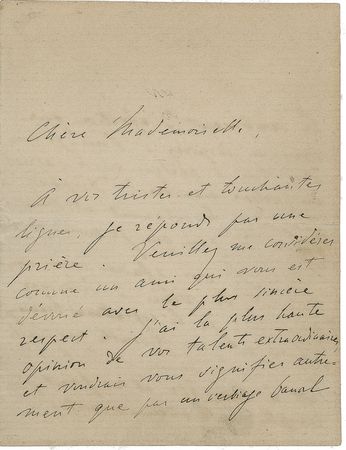 Chère Mademoiselle,
À vos tristes et touchantes
lignes, je réponds par une
prière. Veuillez me considérer
comme un ami qui vous est
dévoué avec le plus sincère
respect. J'ai la plus haute
opinion de vos talents extraordinaires
et voudrais vous signifier autre-
ment que par un verbiage banal